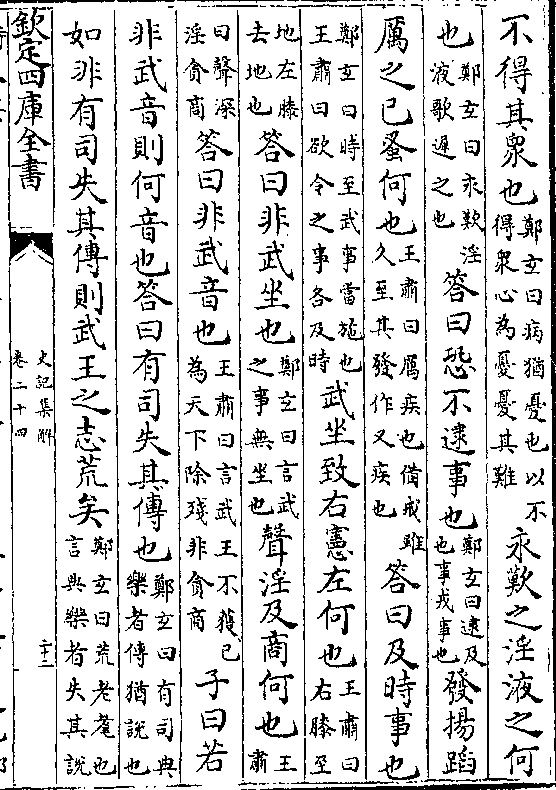 不得其衆也鄭玄曰病猶憂也以不得衆心為憂憂其難永歎之淫液之何
也鄭玄曰永歎淫液歌遲之也答曰恐不逮事也鄭玄曰逮及也事戎事也發揚蹈
厲之已蚤何也王肅曰厲疾也備戒雖久至其發作又疾也答曰及時事也
鄭玄曰時至武事當施也王肅曰欲令之事各及時武坐致右憲左何也王肅曰右膝至
地左膝去地也答曰非武坐也鄭玄曰言武之事無坐也聲淫及商何也王肅
曰聲深淫貪商答曰非武音也王肅曰言武王不獲已為天下除殘非貪商子曰若
非武音則何音也答曰有司失其傳也鄭玄曰有司典樂者傳猶說也
如非有司失其傳則武王之志荒矣鄭玄曰荒老耄也言典樂者失其說
欽定四庫全書
史記集解
卷二十四